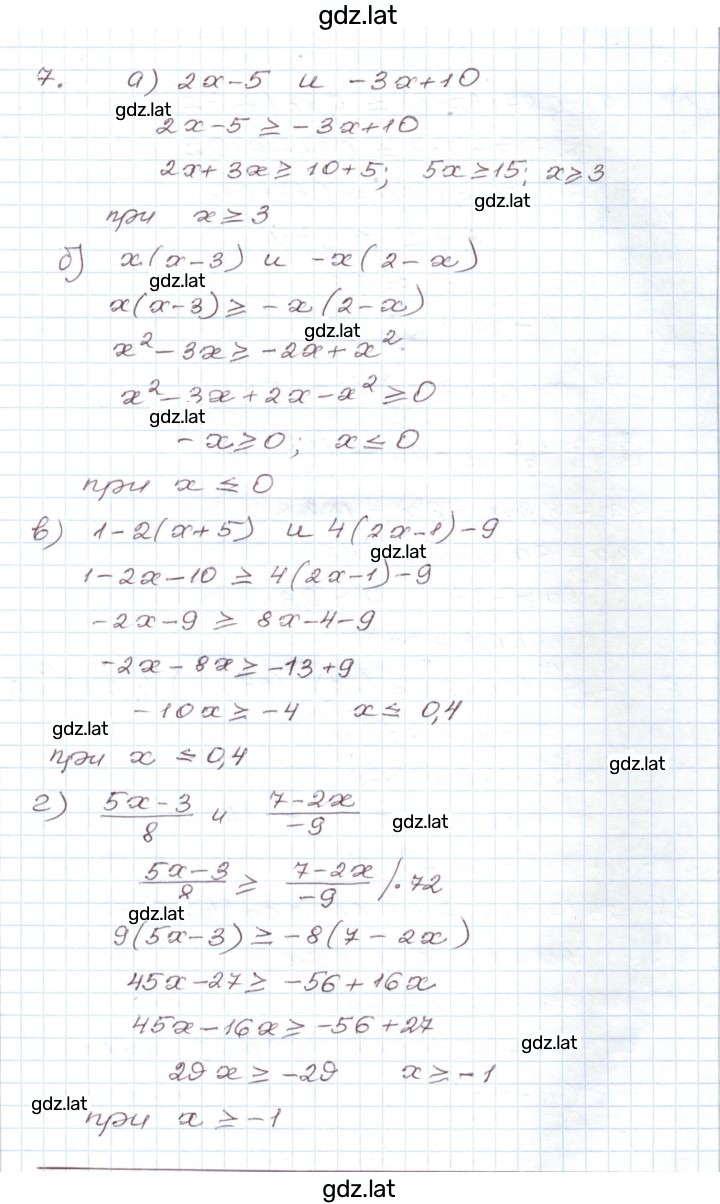 gdz.lat
7. а) 2x-5 и -3x+10
gdz.lat
2x-5 ≥ -3x+10
2x+3x ≥ 10+5; 5x ≥ 15; x ≥ 3
gdz.lat
при x ≥ 3
б) x(x-3) и -x(2-x)
gdz.lat
x(x-3) ≥ -x(2-x)
gdz.lat
x² - 3x ≥ -2x + x²
x² - 3x + 2x - x² ≥ 0
gdz.lat
-x ≥ 0; x ≤ 0
при x ≤ 0
в) 1-2(x+5) и 4(2x-1)-9
gdz.lat
1-2x-10 ≥ 4(2x-1)-9
-2x-9 ≥ 8x-4-9
-2x-8x ≥ -13+9
-10x ≥ -4 x ≤ 0,4
gdz.lat
при x ≤ 0,4
gdz.lat
г) (5x-3)/8 и (7-2x)/-9
gdz.lat
(5x-3)/8 ≥ (7-2x)/-9 /·72
gdz.lat
9(5x-3) ≥ -8(7-2x)
45x-27 ≥ -56+16x
45x-16x ≥ -56+27
gdz.lat
29x ≥ -29 x ≥ -1
gdz.lat
при x ≥ -1
gdz.lat